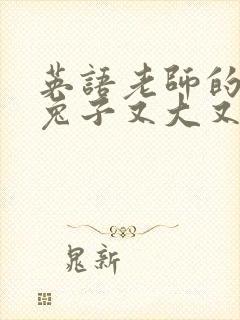 英語老師的
兔子又大又
晁新